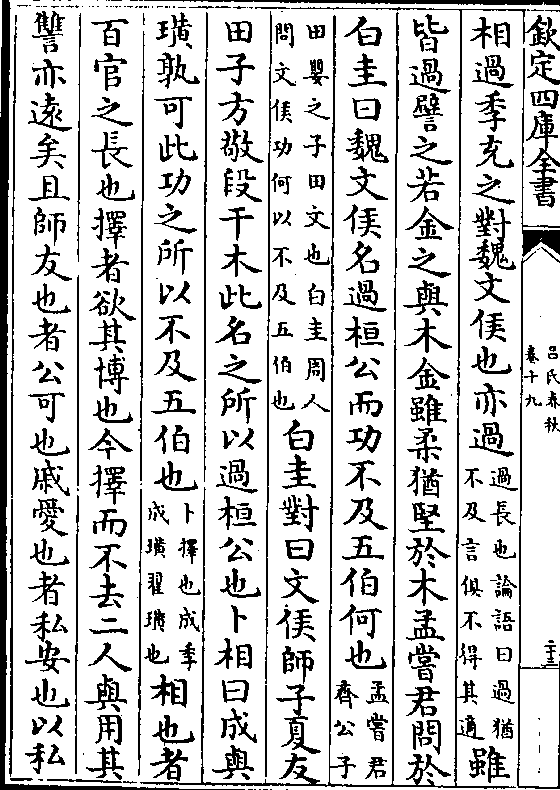 欽定四庫全書
呂氏春秋
卷十九
相過季充之對魏文侯也亦過過長也論語曰過猶不及言俱不得其適雖
皆過譬之若金之與木金雖柔猶堅於木孟嘗君問於
白圭曰魏文侯名過桓公而功不及五伯何也孟嘗君齊公子
田嬰之子田文也白圭周人問文侯功何以不及五伯也白圭對曰文侯師子夏友
田子方敬段干木此名之所以過桓公也卜相曰成與
璜孰可此功之所以不及五伯也卜擇也成季成璜翟璜也相也者
百官之長也擇者欲其博也今擇而不去二人與用其
讐亦遠矣且師友也者公可也戚愛也者私安也以私